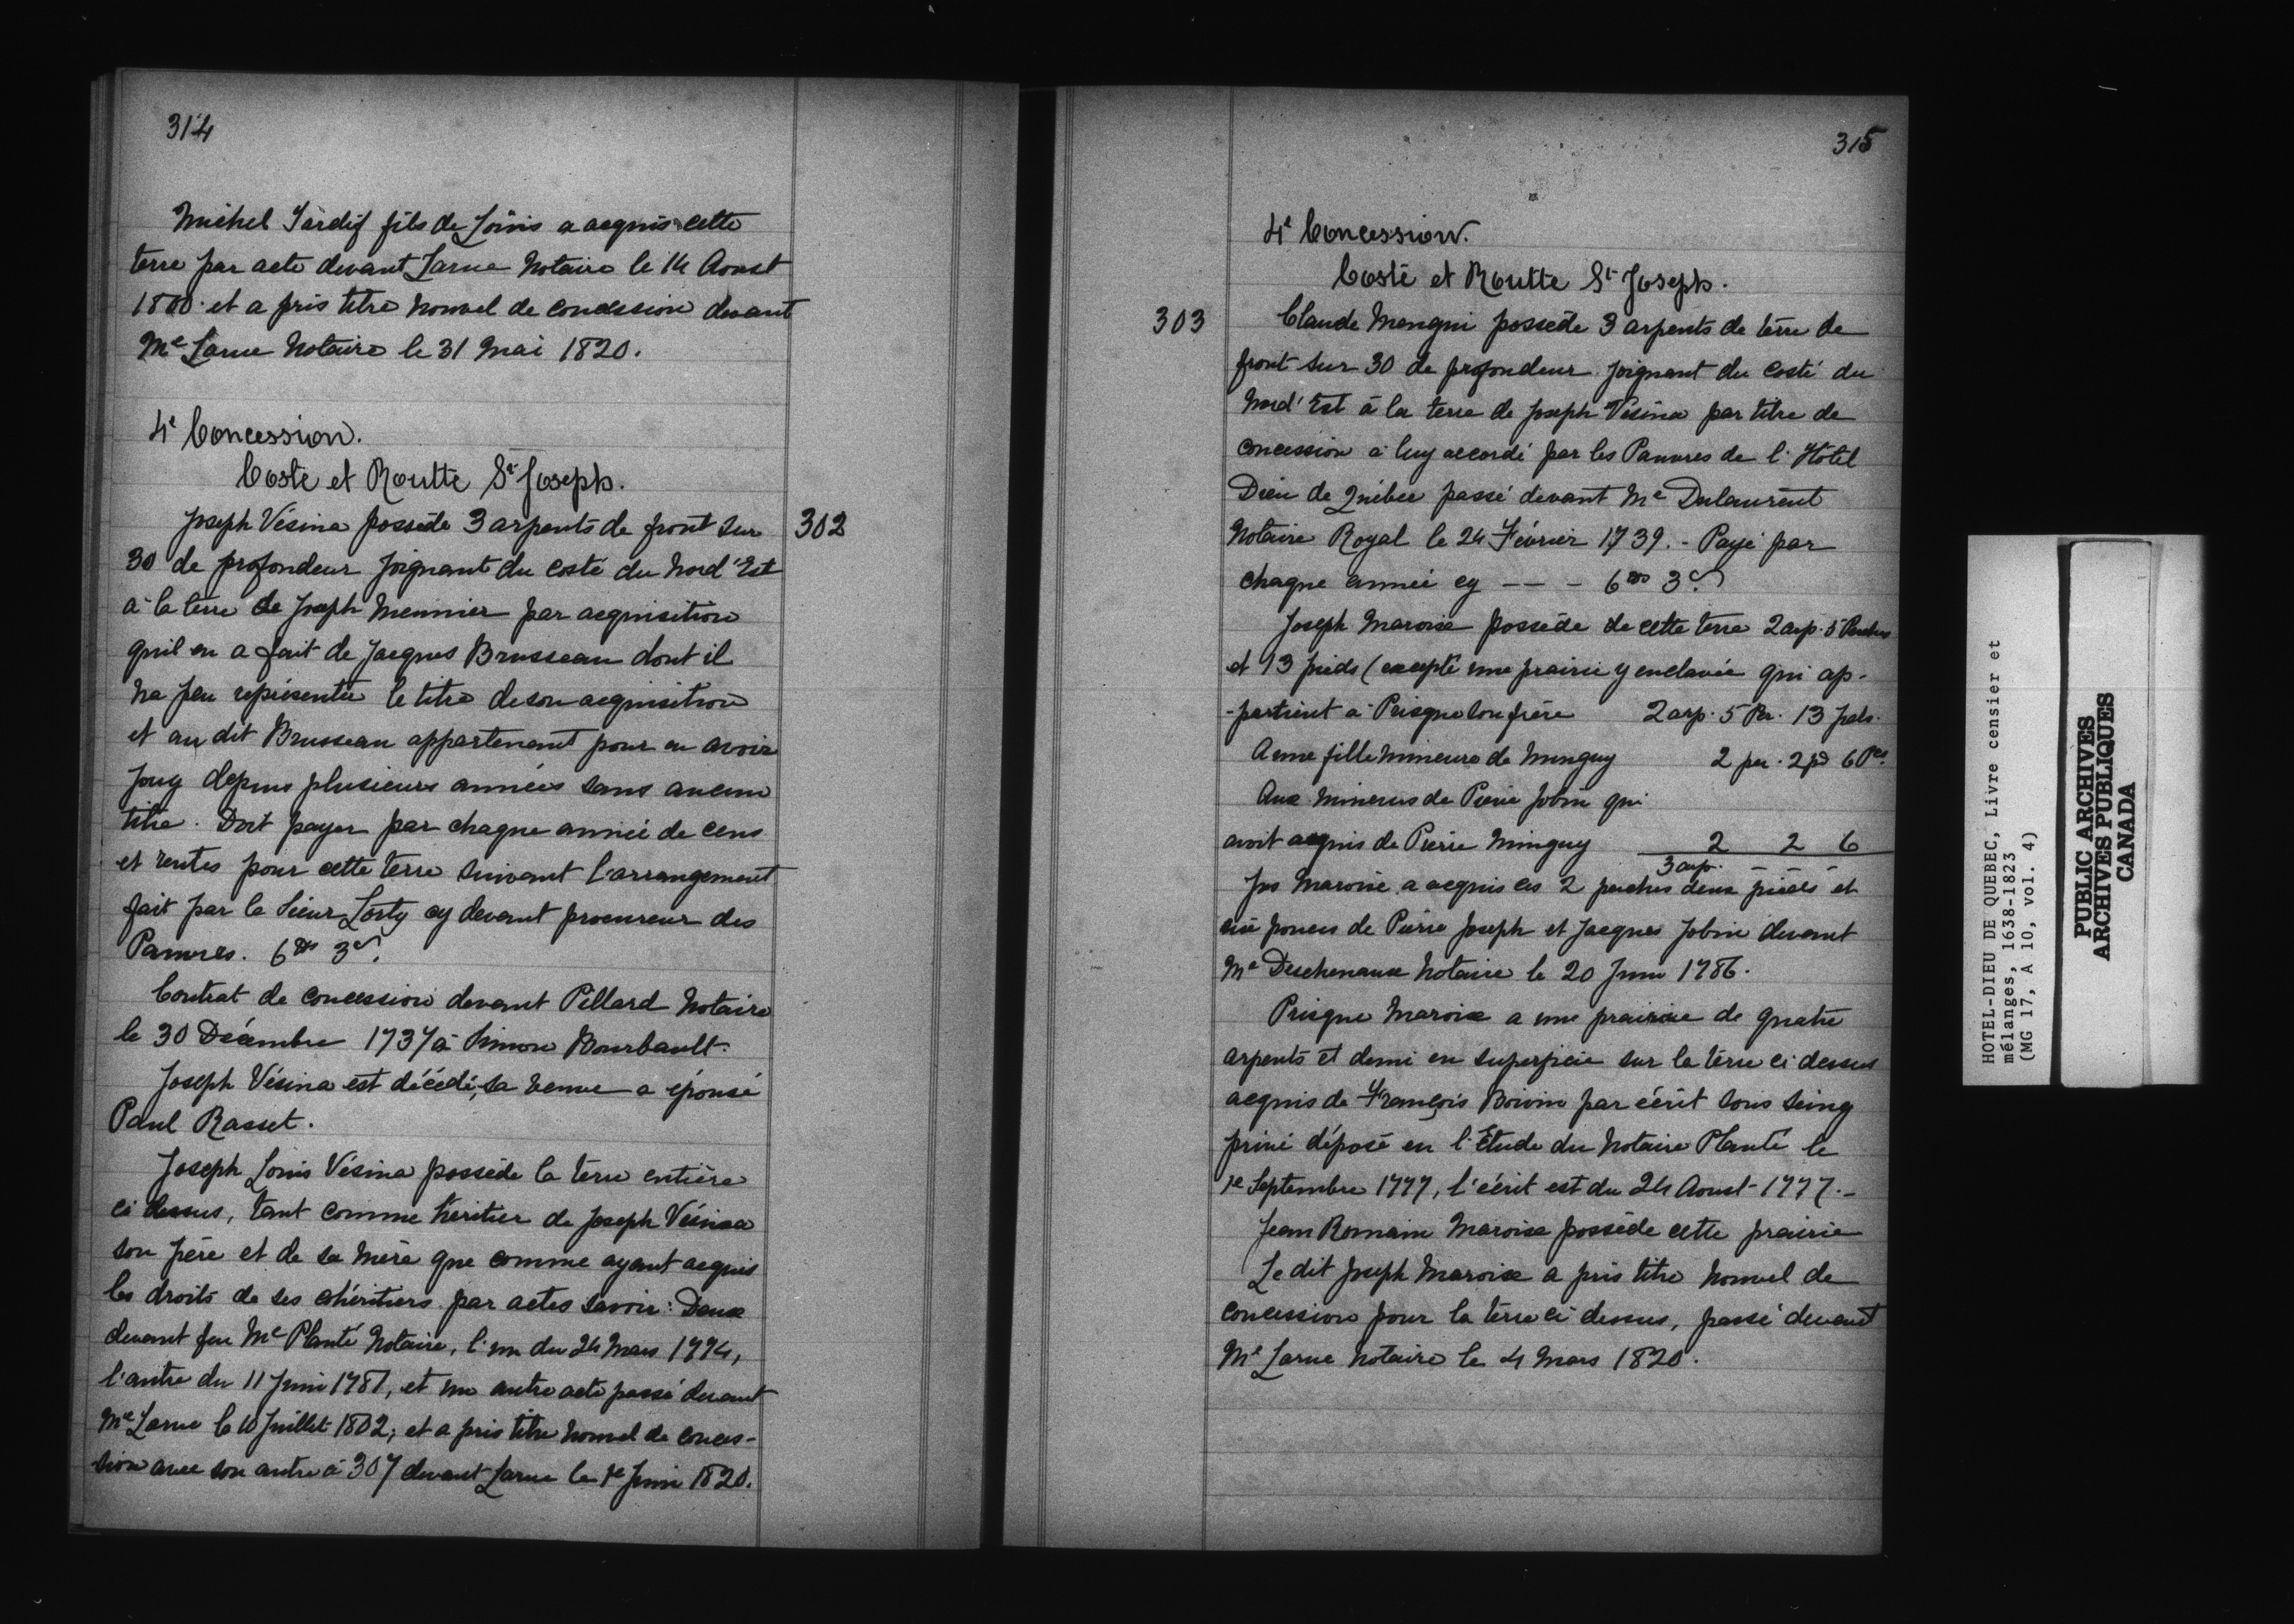 314
Michel Tardif fils de Loüis a acquis cette
terre par acte devant Larue Notaire le 14 Aoust
1800 et a pris titre nouvel de concession devant
Me Larue Notaire le 31 Mai 1820.
4e Concession.
Coste et Routte St Joseph.
302
Joseph Vésina possede 3 arpents de front sur
30 de profondeur joignant du costé du Nord'Est
à la terre de Joseph Meunier par acquisition
quil en a fait de Jacques Brusseau dont il
na peu représentér le titre de son acquisition
et au dit Brusseau appartenant pour en avoir
jouy depuis plusieurs années sans aucun
titre. Doit payer par chaque année de cens
et rentes pour cette terre suivant l'arrangement
fait par le Sieur Lorty cy devant procureur des
Pauvres. 6 3
Contrat de concession devant Pillard Notaire
le 30 Décembre 1737 à Simon Bourbault.
Joseph Vésina est décédé, sa veuve a épousé
Paul Rasset.
Joseph Louis Vésina possède la terre entière
ci dessus, tant comme héritier de Joseph Vésina
son père et de sa mère que comme ayant acquis
les droits de ses cohéritiers par actes savoir: Deux
devant feu Me Planté Notaire, l'un du 24 Mars 1774,
l'autre du 11 Juin 1781, et un autre acte passé devant
Me Larue le 10 Juillet 1802; et a pris titre nouvel de conces-
sion avec son autre à 307 devant Larue le 1e Juin 1820.
315
4e Concession.
Coste et Routte St Joseph.
303
Claude Mengui possède 3 arpents de terre de
front sur 30 de profondeur joignant du costé du
Nord'Est à la terre de Joseph Vésina par titre de
concession à luy accordé par les Pauvres de l'Hôtel
Dieu de Québec passé devant Me Dulaurent
Notaire Royal le 24 Février 1739. - Payé par
chaque année cy - - - 6 3
Joseph Maroix possède de cette terre 2 arp. 5 Perches
et 13 pieds (excepté une prairie y enclavée qui ap-
-partient à Prisque son frère 2 arp. 5 Per. 13 pds.
Anne fille mineure de Minguy 2 per. 2 pd 6 Pces
Aux mineurs de Pierre Jobin qui
avoit acquis de Pierre Minguy 2 2 6
3 arp. - -
Jos Maroix a acquis les 2 perches deux pieds et
six pouces de Pierre Joseph et Jacques Jobin devant
Me Deschenaux Notaire le 20 Juin 1786.
Prisque Maroix a une prairie de quatre
arpents et demi en superficie sur la terre ci dessus
acquis de François Boivin par écrit sous seing
privé déposé en l'Étude du Notaire Planté le
1e Septembre 1777, l'écrit est du 24 Aoust 1777. -
Jean Romain Maroix possède cette prairie
Le dit Joseph Maroix a pris titre nouvel de
concession pour la terre ci dessus, passé devant
Me Larue Notaire le 4 Mars 1820.
HOTEL-DIEU DE QUEBEC, Livre censier et
mélanges, 1638-1823
(MG 17, A 10, vol. 4)
PUBLIC ARCHIVES
ARCHIVES PUBLIQUES
CANADA